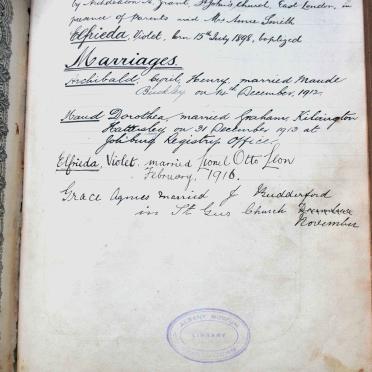 by Middleton A. Grant, St John's Church East London, in
presence of Parents and Mrs Annie Smith
Elfrieda, Violet, born 15th July 1898, baptized
Marriages.
Archibald, Cyril, Henry, married Maude
on December, 1912.
Maud Dorothea, married Graham,
Hattersley on 31 December 1913 at
Joh'burg Registry Office.
Elfrieda, Violet, married Lionel Otto
February, 1916.
Grace Agnes married J
in St Church
November
ALBANY MUSEUM
LIBRARY